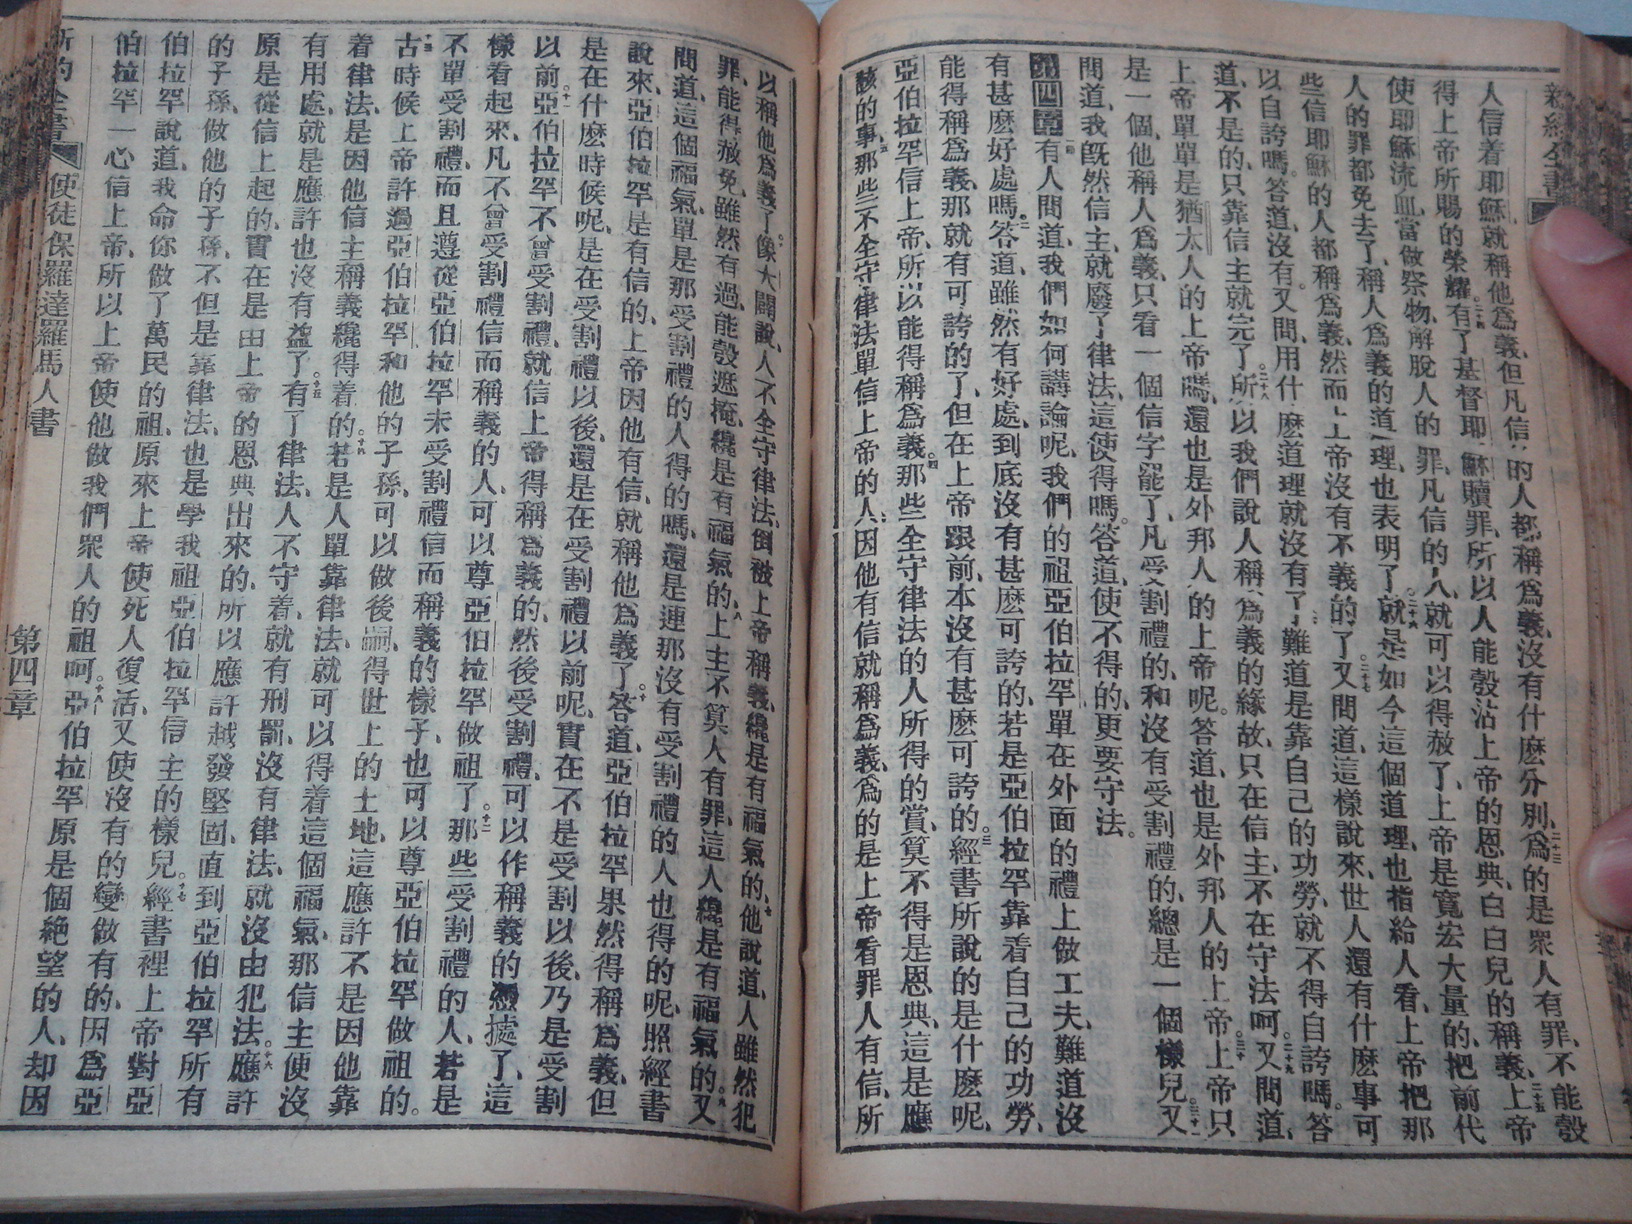 新約全書
人信着耶穌、就稱他爲義、但凡信的人都稱爲義、沒有什麽分別、二十三爲的是眾人有罪、不能彀
得上帝所賜的榮耀、二十四有了基督耶穌贖罪、所以人能彀沾上帝的恩典、白白兒的稱義、二十五上帝
使耶穌流血、當做祭物、解脫人的罪、凡信的人就可以得赦了、上帝是寬宏大量的、把前代
人的罪都免去了、稱人爲義的道理、也表明了、二十六就是如今這個道理、也指給人看、上帝把那
些信耶穌的人都稱爲義、然而上帝沒有不義的了。二十七又問道、這樣說來、世人還有什麽事可
以自誇嗎。答道、沒有。又問、用什麽道理就沒有了、難道是靠自己的功勞、就不得自誇嗎。答
道、不是的、只靠信主就完了。二十八所以我們說人稱爲義的緣故、只在信主、不在守法呵。二十九又問道、
上帝單單是猶太人的上帝嗎、還也是外邦人的上帝呢。答道、也是外邦人的上帝。三十上帝只
是一個、他稱人爲義、只看一個信字罷了、凡受割禮的、和沒有受割禮的、總是一個樣兒。三十一又
問道、我旣然信主、就廢了律法、這使得嗎。答道、使不得的、更要守法。
第四章 一有人問道、我們如何講論呢、我們的祖亞伯拉罕單在外面的禮上做工夫、難道沒
有甚麽好處嗎。二答道、雖然有好處、到底沒有甚麽可誇的、若是亞伯拉罕靠着自己的功勞、
能得稱爲義、那就有可誇的了、但在上帝跟前、本沒有甚麽可誇的。三經書所說的是什麽呢、
亞伯拉罕信上帝、所以能得稱爲義。四那些全守律法的人所得的賞、算不得是恩典、這是應
該的事、五那些不全守律法、單信上帝的人、因他有信就稱爲義、爲的是上帝看罪人有信、所
以稱他爲義了、六像大闢說、人不全守律法、倒被上帝稱義、纔是有福氣的、七他說道、人雖然犯
罪、能得赦免、雖然有過、能彀遮掩、纔是有福氣的、八上主不算人有罪、這人纔是有福氣的。九又
問道、這個福氣單是那受割禮的人得的嗎、還是連那沒有受割禮的人也得的呢、照經書
說來、亞伯拉罕是有信的、上帝因他有信、就稱他爲義了。十答道、亞伯拉罕果然得稱爲義、但
是在什麽時候呢、是在受割禮以後、還是在受割禮以前呢、實在不是受割以後、乃是受割
以前。十一亞伯拉罕不曾受割禮、就信上帝、得稱爲義的、然後受割禮、可以作稱義的憑據了、這
樣看起來、凡不曾受割禮信而稱義的人、可以尊亞伯拉罕做祖了。十二那些受割禮的人、若是
不單受割禮、而且遵從亞伯拉罕未受割禮信而稱義的樣子、也可以尊亞伯拉罕做祖的。
十三古時候上帝許過亞伯拉罕和他的子孫、可以做後嗣、得世上的土地、這應許不是因他靠
着律法、是因他信主稱義纔得着的。十四若是人單靠律法、就可以得着這個福氣、那信主便沒
有用處、就是應許也沒有益了。十五有了律法、人不守着、就有刑罰、沒有律法、就沒由犯法。十六應許
原是從信上起的、實在是由上帝的恩典出來的、所以應許越發堅固、直到亞伯拉罕所有
的子孫、做他的子孫、不但是靠律法、也是學我祖亞伯拉罕信主的樣兒。十七經書裡上帝對亞
伯拉罕說道、我命你做了萬民的祖、原來上帝使死人復活、又使沒有的變做有的、因爲亞
伯拉罕一心信上帝、所以上帝使他做我們眾人的祖呵。十八亞伯拉罕原是個絕望的人、却因
新約全書 使徒保羅達羅馬人書 第四章